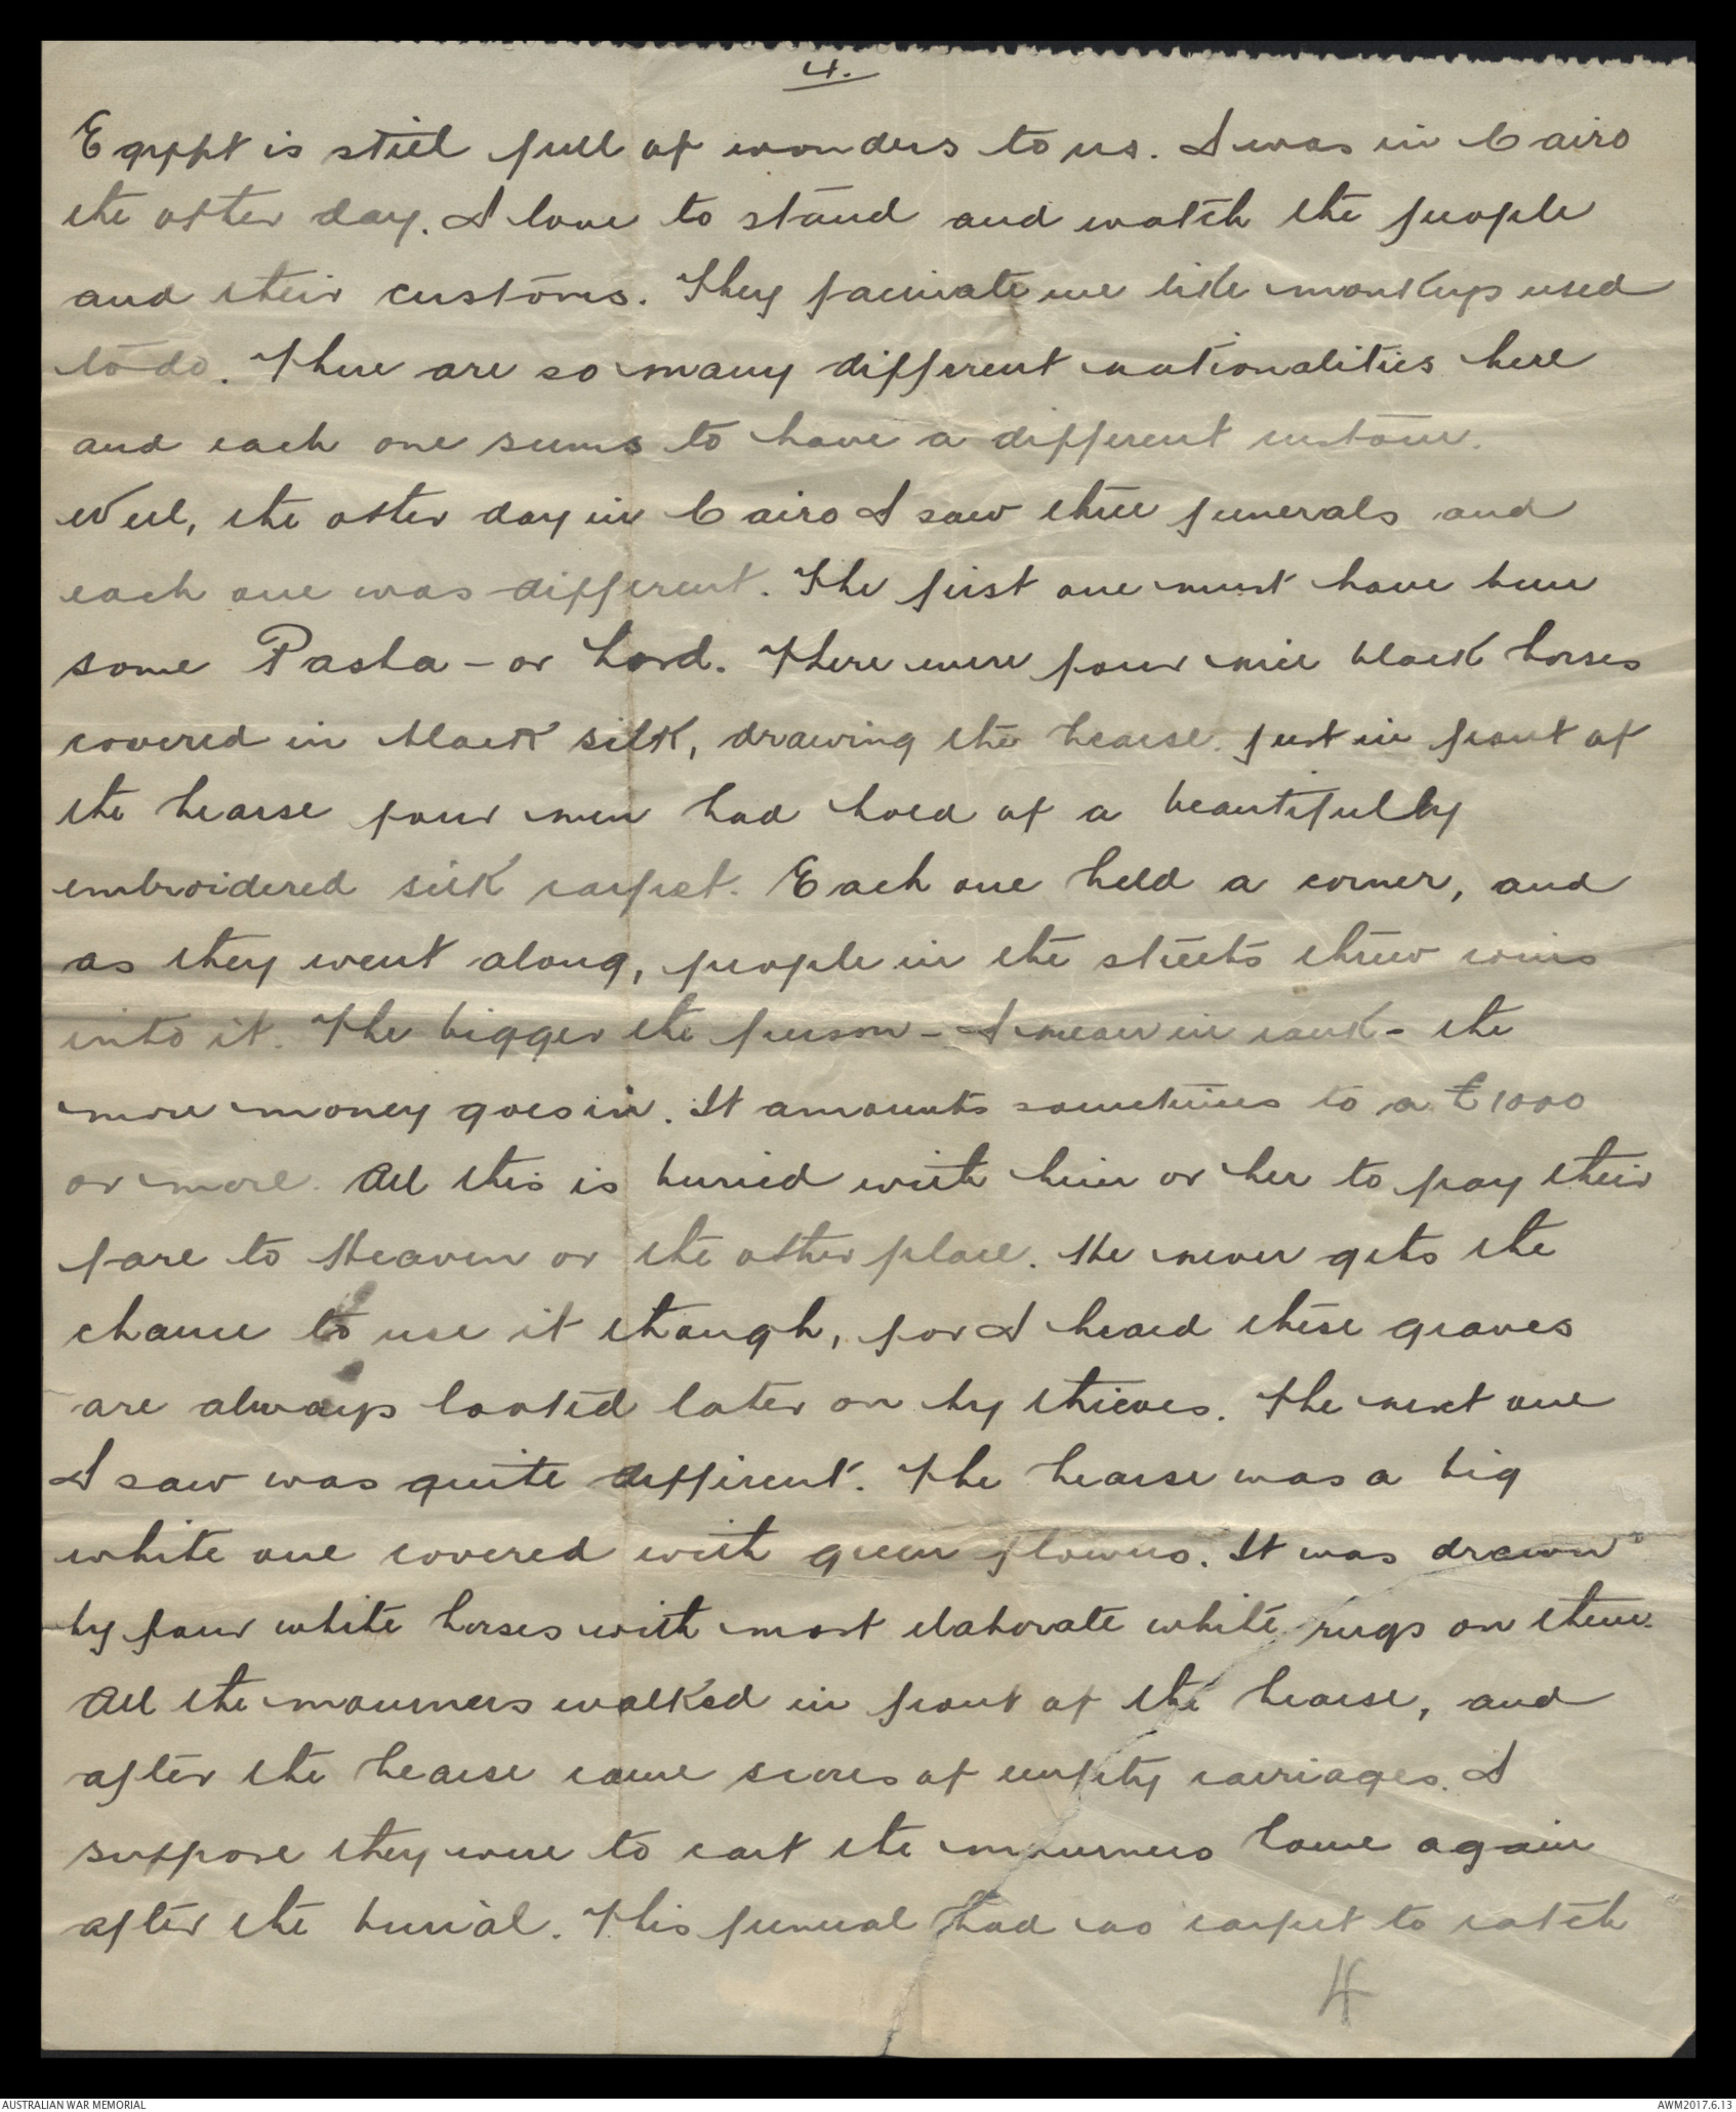 4.
Egypt is still full of wonders to us. I was in Cairo
the other day. I love to stand and watch the people
and their customs. They facinate me like monkeys used
to do. There are so many different nationalities here
and each one seems to have a different custom.
Well, the other day in Cairo I saw three funerals and
each one was different. The first one must have been
some Pasha - or Lord. There were four nice black horses
covered in black silk, drawing the hearse. Just in front of
the hearse four men had hold of a beautifully
embroidered silk carpet. Each one held a corner, and
as they went along, people in the streets threw coins
into it. The bigger the person - I mean in rank - the
more money goes in. It amounts sometimes to a £1000
or more. All this is buried with him or her to pay their
fare to Heaven or the other place. He never gets the
chance to use it though, for I heard these graves
are always looted later on by thieves. The next one
I saw was quite different. The hearse was a big
white one covered with green flowers. It was drawn
by four white horses with most elaborate white rugs on them.
All the mourners walked in front of the hearse, and
after the hearse came scores of empty carriages. I
suppose they were to cart the mourners home again
after the burial. This funeral had no carpet to catch
4
AUSTRALIAN WAR MEMORIAL
AWM2017.6.13